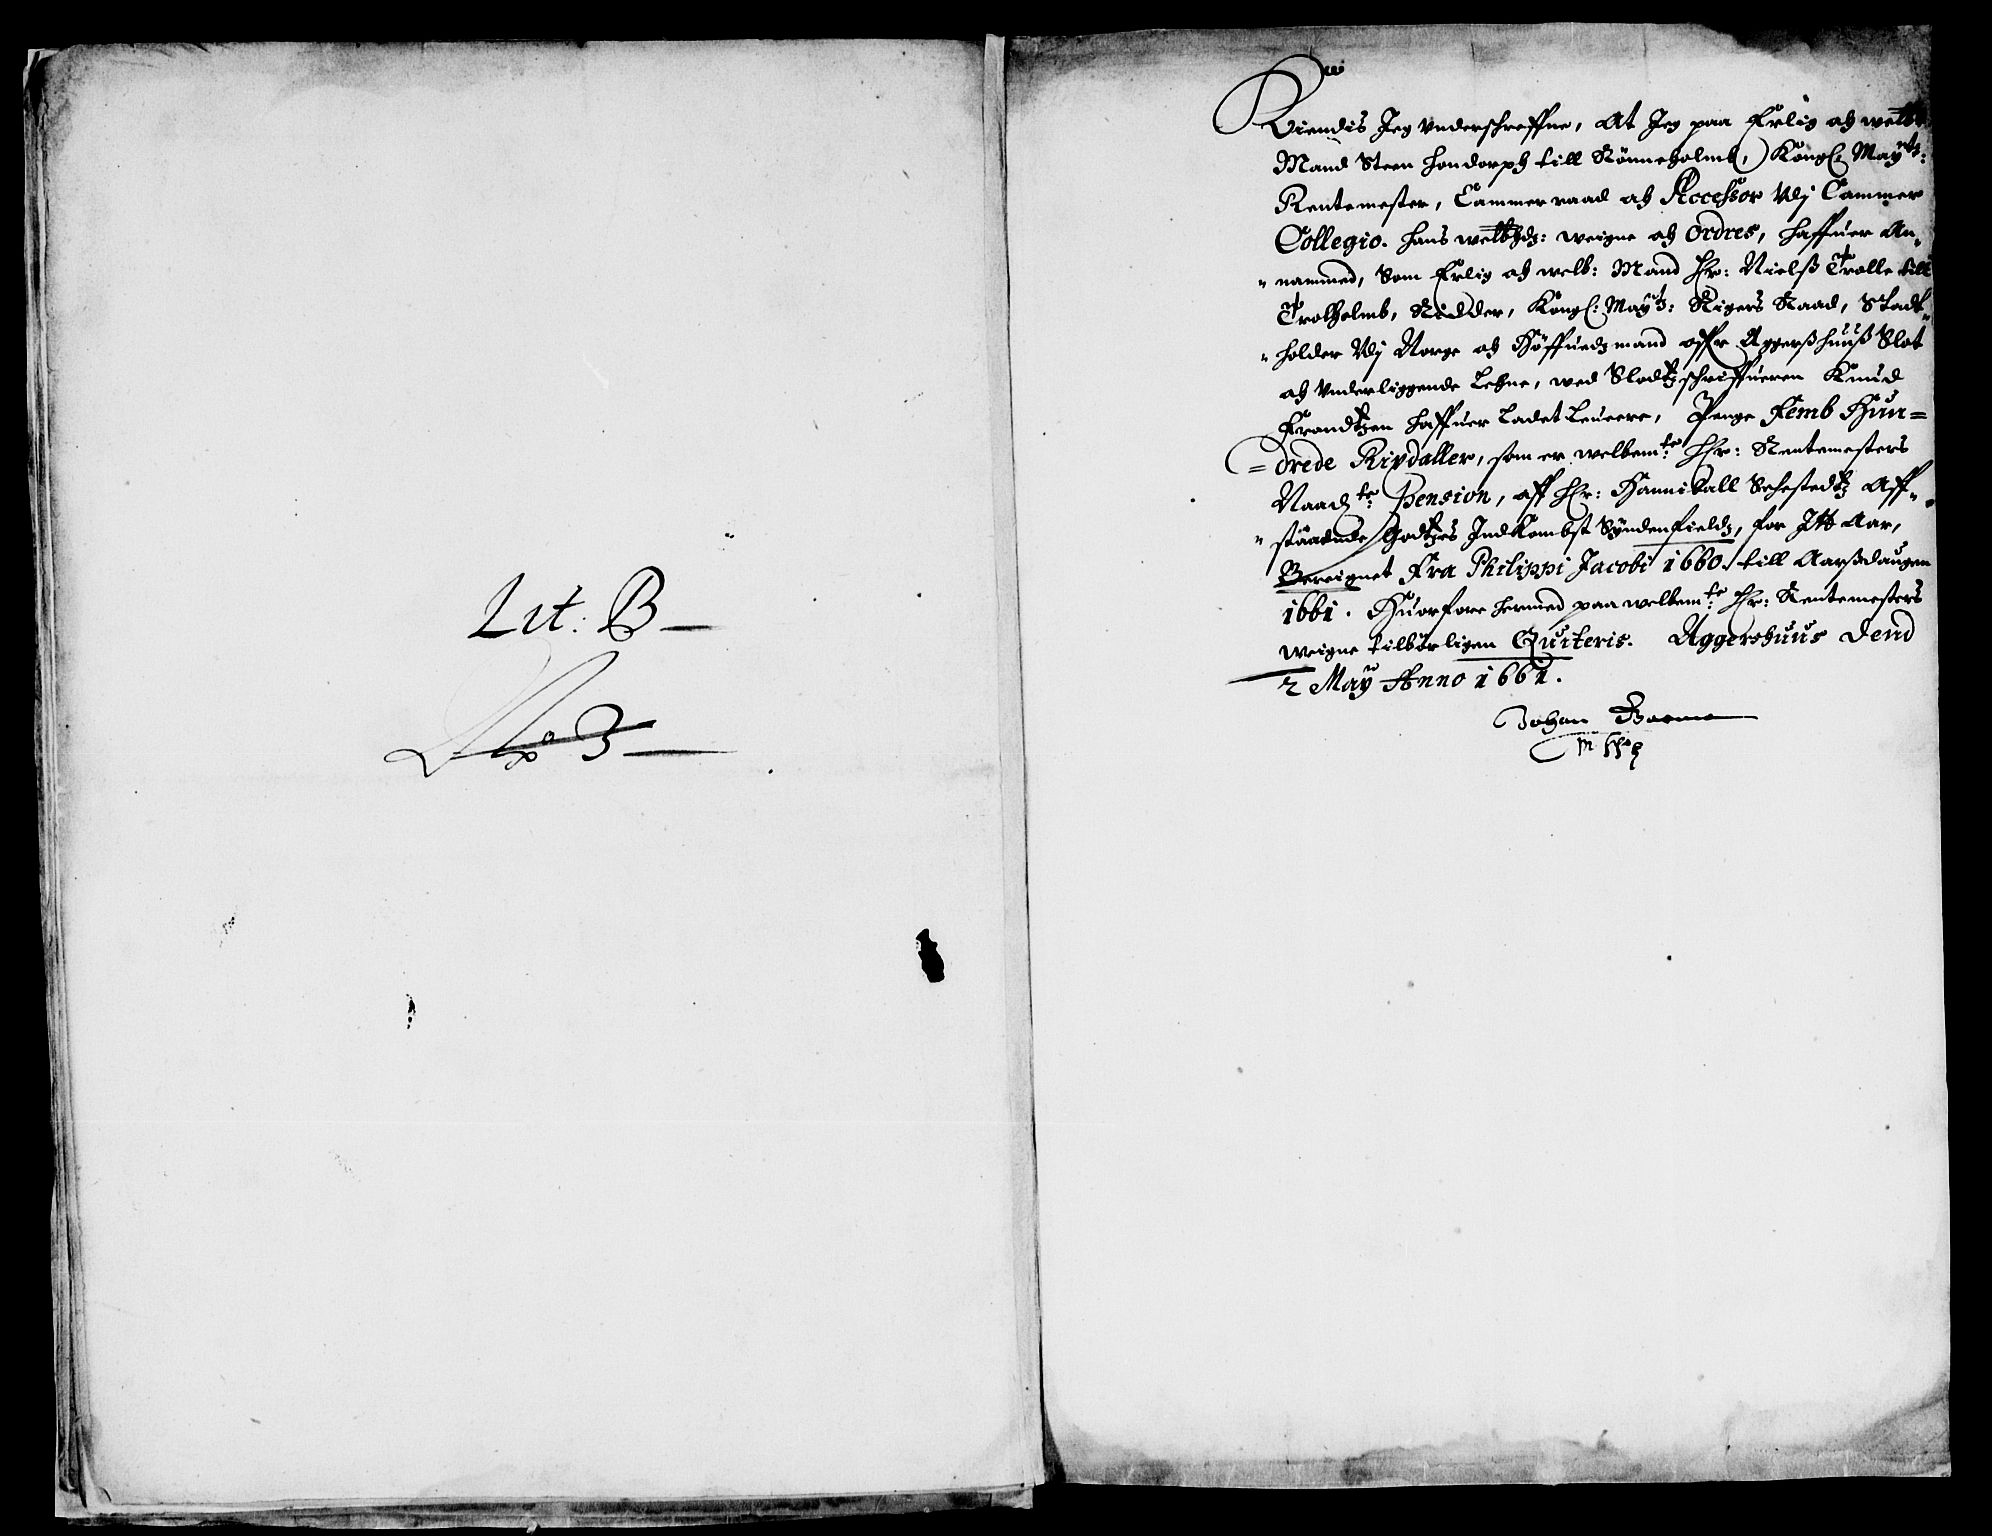 Lit: B
No 3
Kiendis Jeg Underschreffne, At Jeg paa Erlig och welb:
Mand Steen Hondorph till Rönneholmb, Kongl: Maytz:
Rentemester, Cammerraad och Accessor Udj Cammer
Collegio. Hans welbhdz: weigne och Ordres, haffuer An-
-nammed, Som Erlig och welb: Mand Hr: Nielß Trolle till
Trolholmb, Ridder, Kongl: Maytz: Rigers Raad, Stadt-
-holder Udj Norge och Höffuedzmand offr Aggerßhuuß Slot
och Underliggende Lehne, wed Slodtzschriffueren Knud
Frandtzen haffuer Ladet Leueere, Penge Femb Hun=
=drede Rixdaller, som er welbemte: Hr: Rentemesters
Naadte: Pension, aff Hr: Hanniball Sehestedtz Aff-
-stäaende Godtzes Indkombst Syndenfieldz, for Itt Aar,
Bereignet Fra Philippi Jacobi 1660. till Aarßdaugen
1661. Huorfore hermed paa welbemte: Hr: Rentemesters
weigne tilbörligen Quiteris. Aggershuus Dend
2 May Anno 1661.
Johan